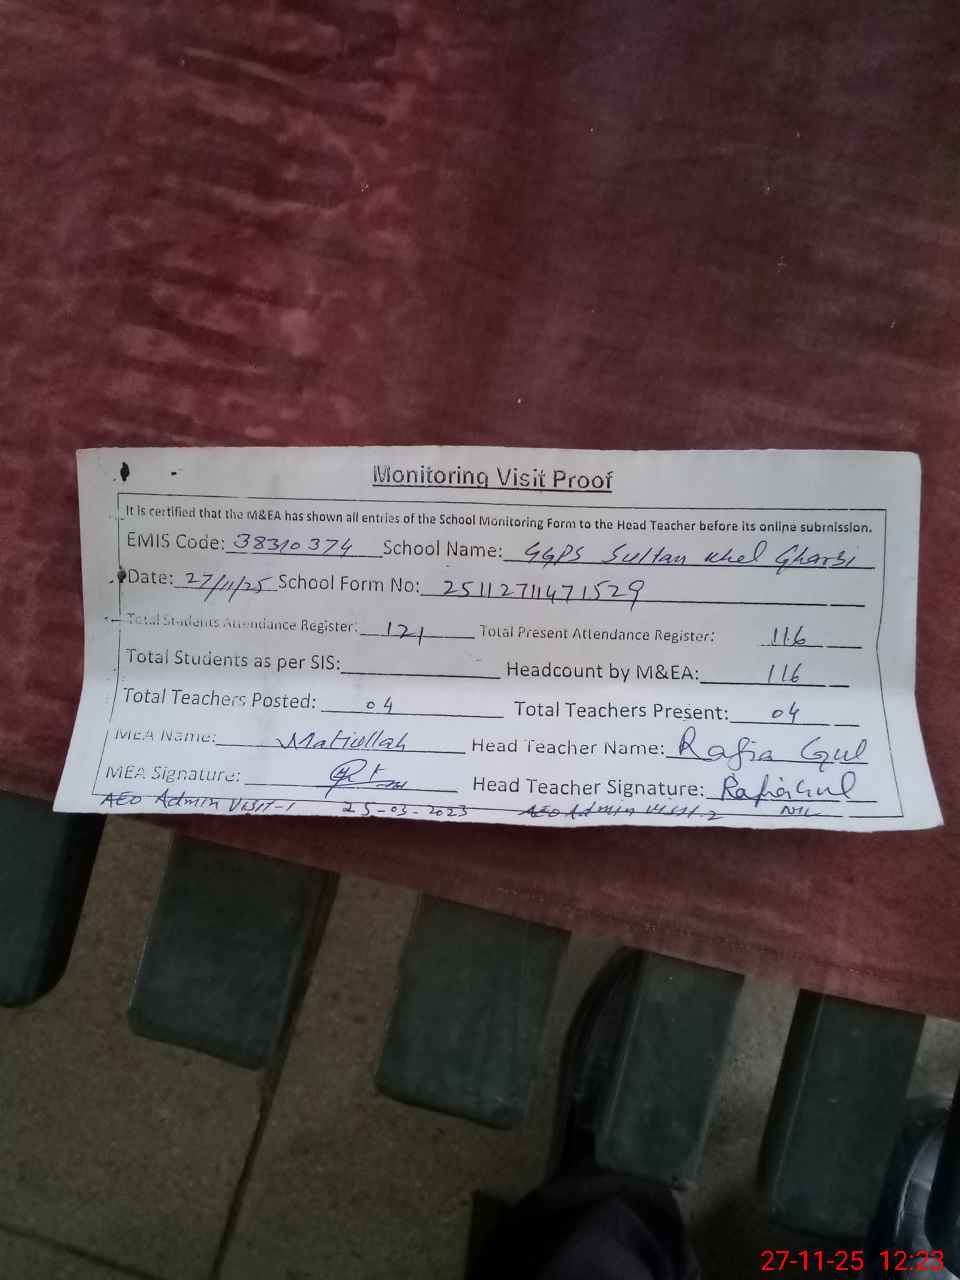 Monitoring Visit Proof
It is certified that the M&EA has shown all entries of the School Monitoring Form to the Head Teacher before its online submission.
EMIS Code: 38310374 School Name: GGPS Sultan Khel Gharbi
Date: 27/11/25 School Form No: 2511271147 1529
Total Students Attendance Register: 121 Total Present Attendance Register: 116
Total Students as per SIS: Headcount by M&EA: 116
Total Teachers Posted: 04 Total Teachers Present: 04
MEA Name: Matiullah Head Teacher Name: Rafia Gul
MEA Signature: Head Teacher Signature: Rafia Gul
AEO Admin Visit-1 25-03-2023 AEO Admin Visit-2 NIL
27-11-25 12:23